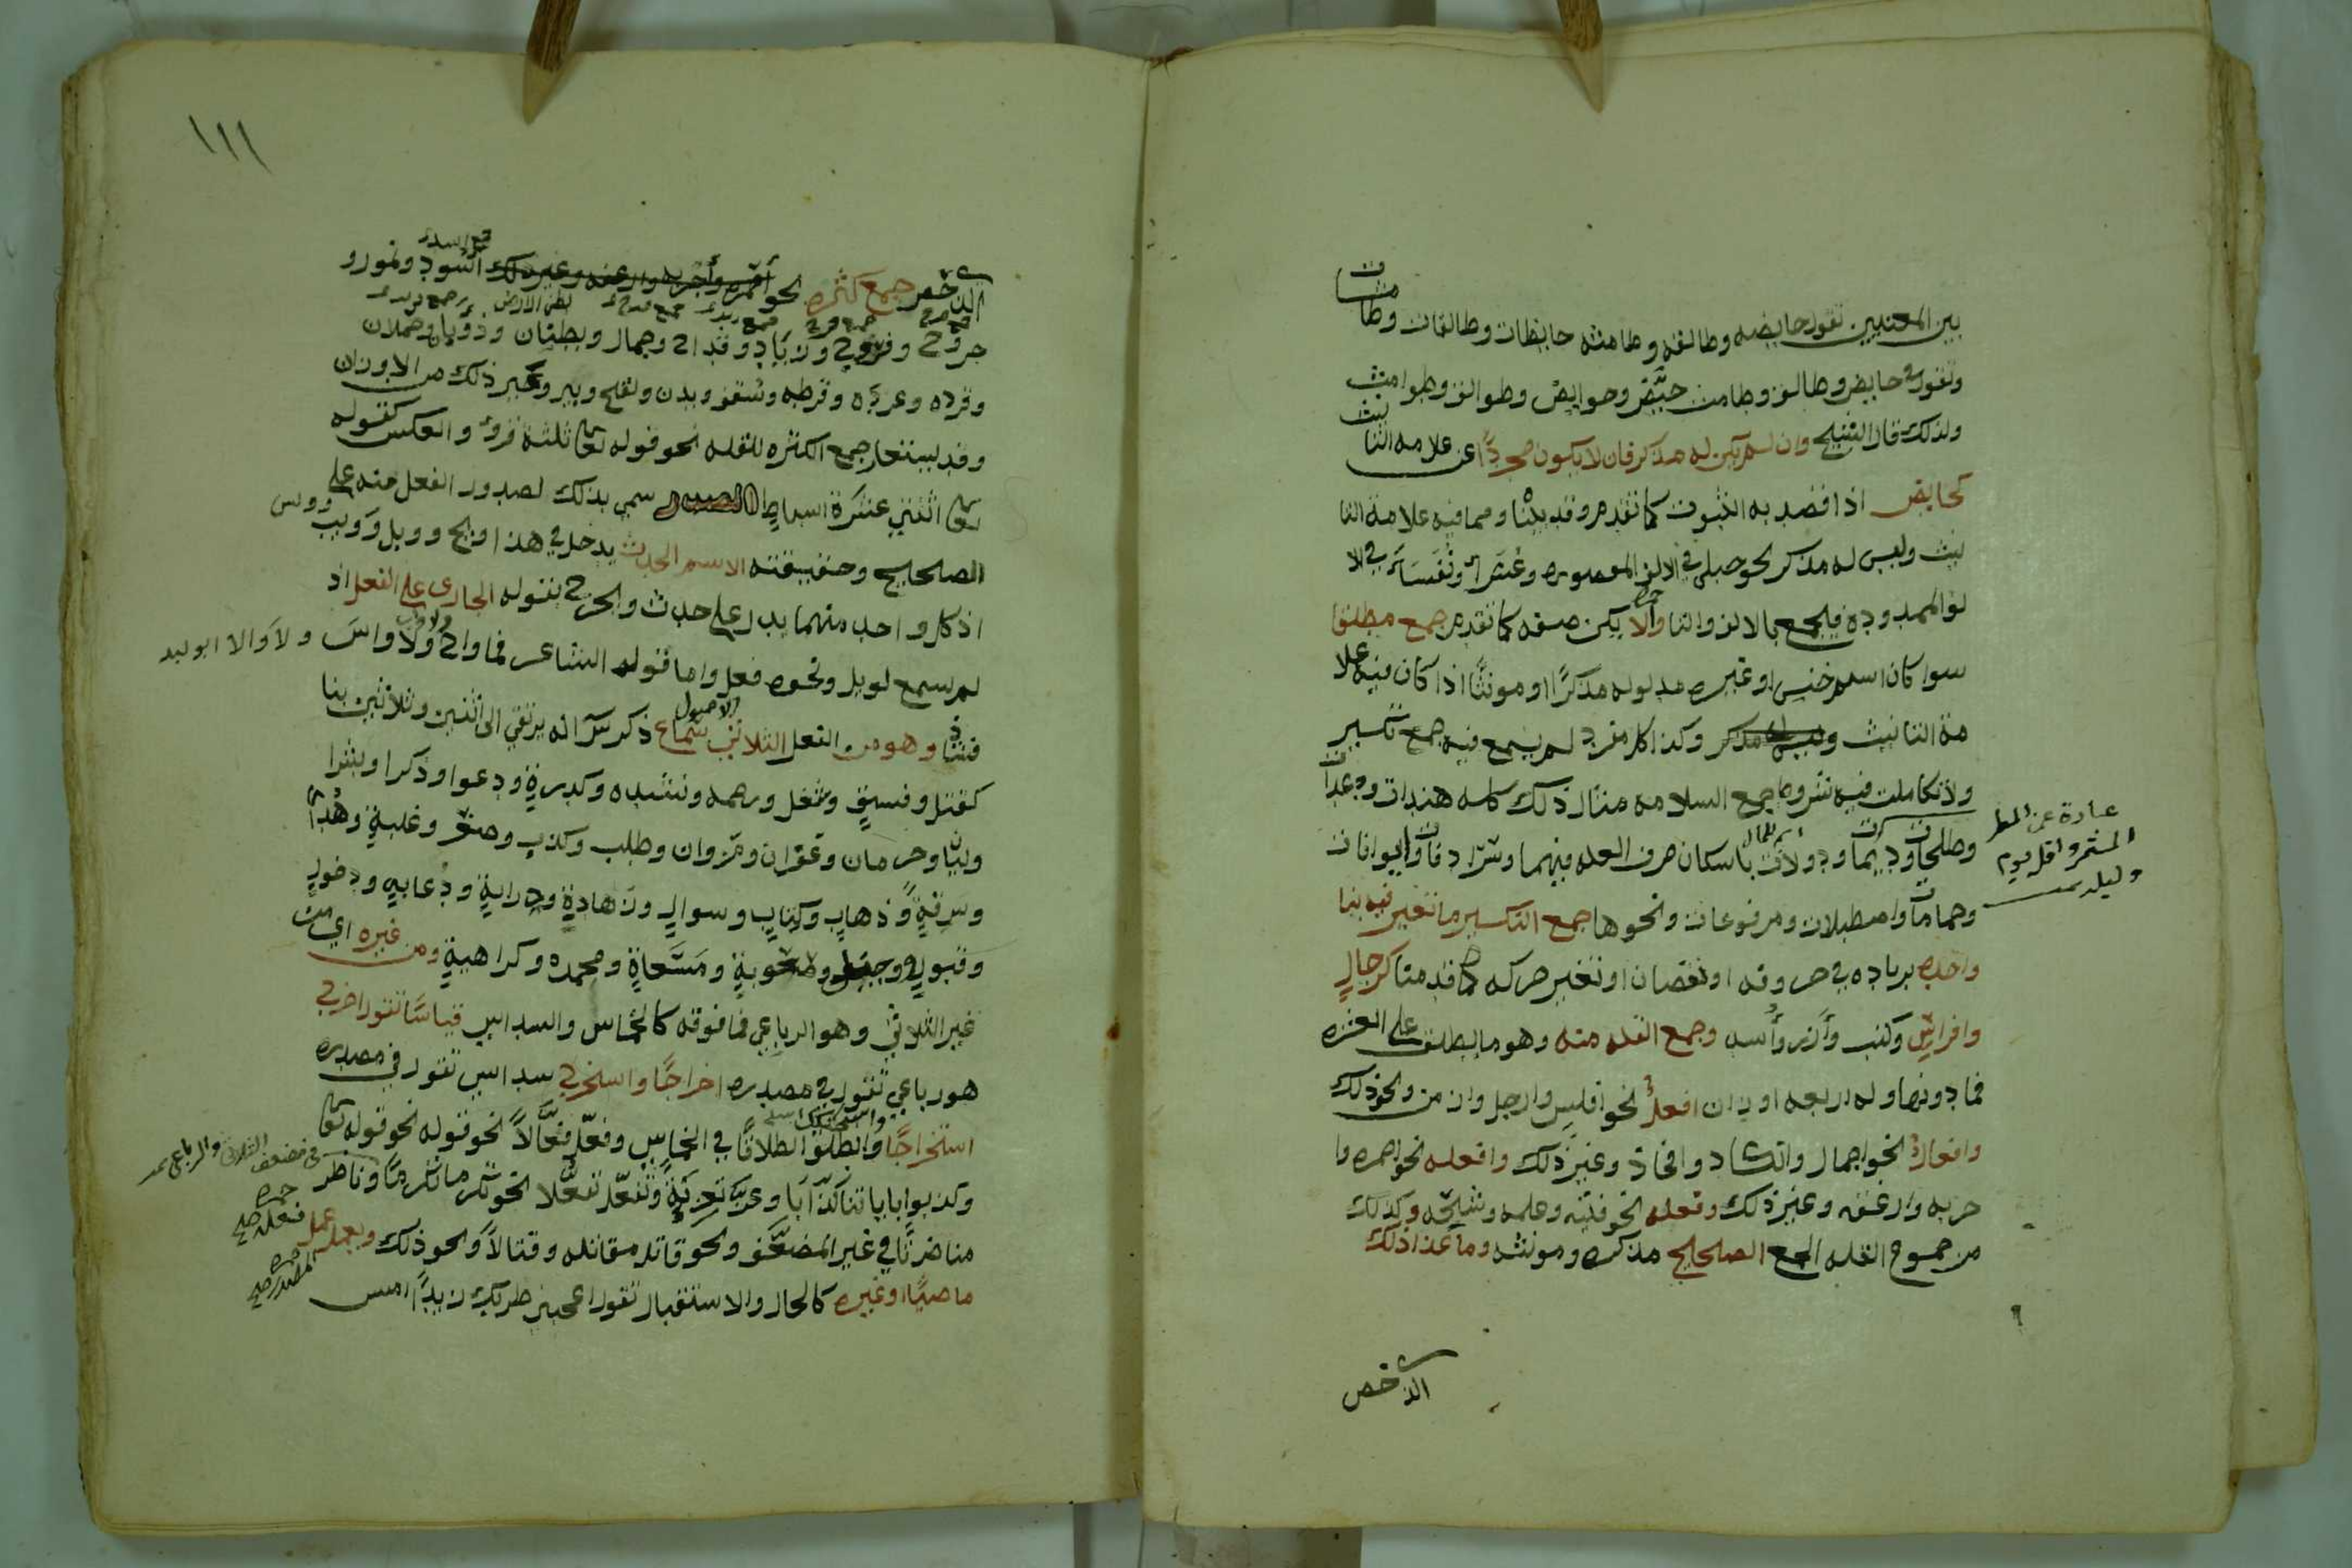 بين المعنيين تقول حايضه وطالقه وطامثه حايضات وطالقات وطامثات
وتقول في حايض وطالق وطامث حيّض وحوايض وطوالق وطوامث
ولذلك قال الشيخ وان لم يكن له مذكر فان لا يكون مجردًا عن علامه التانيث
كحايض اذا قصد به الثبوت كما تقدم وقد بيّنا ومما فيه علامة التا
نيث وليس له مذكر نحو حبلى في الالف المقصوره وعشرآ ونفسآ في الا
لف الممدوده فيجمع بالالف والتا والا يكن صفه كما تقدم جمع مطلقا
سوا كان اسم جنس او غيره مدلوله مذكرًا او مونثًا اذا كان فيه علا
مة التانيث وكذا كل مفرد لم يسمع فيه جمع تكسير
ولا تكاملت فيه شروط جمع السلامه مثال ذلك كله هندات ودعدات
وطلحات وديمات ودولات باسكان حرف العله فيهما وسرادقات وايوانات
وحمامات واصطبلات ومرفوعات ونحوها جمع التكسير ما تغير فيه بنا
واحده بزياده في حروفه او نقصان او تغير حركه كما قدمنا كرجالٍ
وافراسٍ وكتب وأزر وأسد وجمع القله منه وهو ما يطلق على العشره
فما دونها وله اربعه اوزان افعلٌ نحو افلس وارجل وازمن ونحو ذلك
وافعالٌ نحو اجمال وافخاذ وغير ذلك وافعله نحو احمره وا
جربه وارغفه وغير ذلك وفعله نحو فتيه وغلمه وشيخه وكذلك
من جموع القله الجمع الصحيح مذكره ومونثه وما عدا ذلك
عبارة عن المطر
المستمر واقل يوم
وليله
الاخص
١١١
الاخص جمع كثره نحو اسود ونمور و
جروح وفروخ وزناد وقداح وجمال وبطنان وذؤبان وحملان
وقرده وغير ذلك من الاوزان
وقد يستعار جمع الكثره للقله نحو قوله تعا ثلثة قروء والعكس كقوله
تعا اثنتي عشرة اسباطا المصدر سمي بذلك لصدور الفعل منه على
الصحيح وحقيقته الاسم الحدث يدخل في هذا ويح وويل وويب وويس
اذ كل واحد منهما يدل على حدث والخرج بقوله الجاري على الفعل اذ
لم يسمع لويل ونحوه فعل واما قول الشاعر فما واح ولا واس ولا وال ابو ليد
فشاذ وهو من الفعل الثلاثي سماع ذكر س انه يرتقي الى اثنين وثلاثين بنا
كقتل وفسق وشغل ورحمه ونشده وكدرةٍ ودعوا وذكرا وبشرا
وليان وحرمان وغفران ونزوان وطلب وكذب وصغر وغلبةٍ وهدًا
وسرقةٍ وذهاب وكتاب وسوالٍ وزهادةٍ ودرايةٍ ودعابهٍ ودخولٍ
وقبولٍ وصهوبةٍ ومسعاةٍ ومحمده وكراهيةٍ ومن غيره اي من
غير الثلاثي وهو الرباعي فما فوقه كالخماس والسداس قياسًا تقول اخرج
هو رباعي تقول في مصدره اخراجًا واستخرج سداسي تقول في مصدره
استخراجًا وانطلق انطلاقًا في الخماس وفعّل فعّالًا نحو قوله نحو قوله تعا
وكذبوا باياتنا كذابًا وعزّى تعزيةً وتفعّل تفعّلا نحو تكرم تكرمًا وناظر
مناظرتًا في غير المضعّف ونحو قاتل مقاتله وقتالًا ونحو ذلك ويعمل عمل فعله
ماضيًا او غيره كالحال والاستقبال تقول اعجبني ضربك زيدًا امس
في مضعف الثلاثي والرباعي
المصدر صح